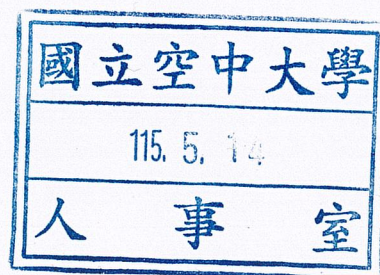 國立空中大學
115. 5. 14
人事室